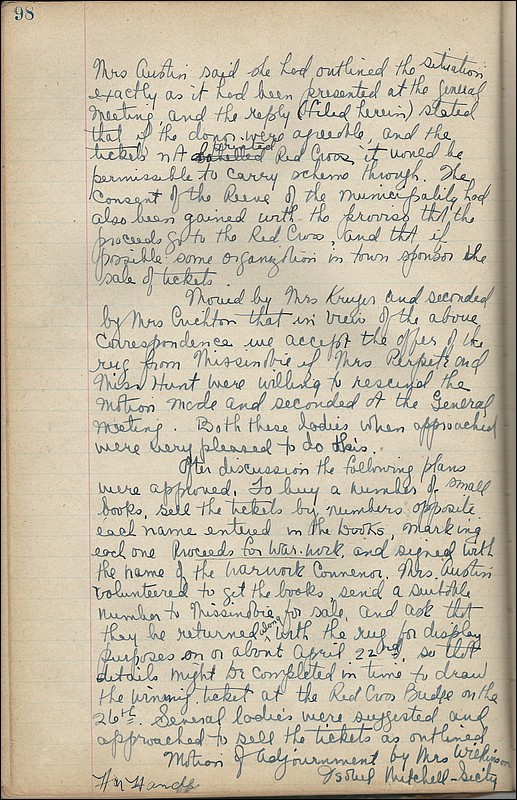 98
Mrs Austin said she had outlined the situation
exactly as it had been presented at the General
Meeting and the reply (filed herein) stated
that if the donor were agreeable, and the
tickets not printed Red Cross, it would be
permissible to carry scheme through. The
consent of the Reeve of the municipality had
also been gained with the proviso that the
proceeds go to the Red Cross, and that if
possible some organization in town sponsor the
sale of tickets.
Moved by Mrs Kruger and seconded
by Mrs Crichton that in view of the above
correspondence we accept the offer of the
rug from Missinabie if Mrs Perpete and
Miss Hunt were willing to rescind the
motion made and seconded at the General
Meeting. Both these ladies when approached
were very pleased to do this.
After discussion the following plans
were approved. To buy a number of small
books, sell the tickets by numbers opposite
each name entered in the books, marking
each one Proceeds for War-work, and signed with
the name of the warwork Convenor. Mrs. Austin
volunteered to get the books, send a suitable
number to Missinabie for sale, and ask that
they be returned along with the rug for display
purposes on or about April 22nd, so that
details might be completed in time to draw
the winning ticket at the Red Cross Bridge on the
26th. Several ladies were suggested and
approached to sell the tickets as outlined.
Motion of adjournment by Mrs Wilkinson
Isobel Mitchell - Sec'ty